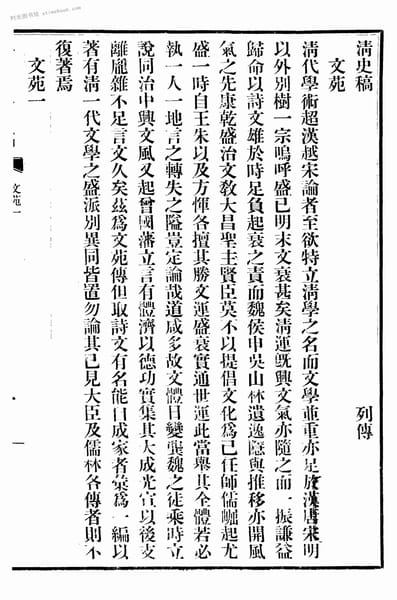 清史稿 列傳
文苑
清代學術超漢越宋論者至欲特立清學之名而文學並重亦足於漢唐宋明
以外別樹一宗嗚呼盛已明末文衰甚矣清運既興文氣亦隨之而一振謙益
歸命以詩文雄於時足負起衰之責而魏侯申吳山林遺逸隱與推移亦開風
氣之先康乾盛治文教大昌聖主賢臣莫不以提倡文化爲己任師儒崛起尤
盛一時自王朱以及方惲各擅其勝文運盛衰實通世運此當舉其全體若必
執一人一地言之轉失之隘豈定論哉道咸多故文體日變龔魏之徒乘時立
說同治中興文風又起曾國藩立言有體濟以德功實集其大成光宣以後支
離龐雜不足言文久矣茲爲文苑傳但取詩文有名能自成家者彙爲一編以
著有清一代文學之盛派別異同皆置勿論其已見大臣及儒林各傳者則不
復著焉
文苑一
文苑一